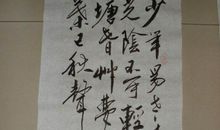 少年易老
光陰不可輕
塘春艸夢
葉已秋聲